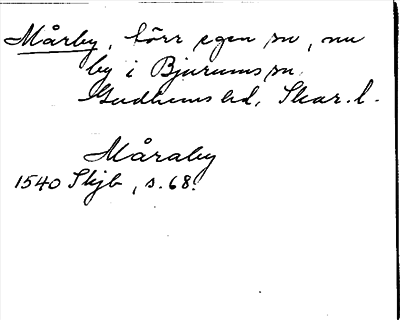 Mårby, förr egen sn, nu
by i Bjurums sn,
Gudhems hd, Skar. l.
Måraby
1540 Skjb, s. 68.